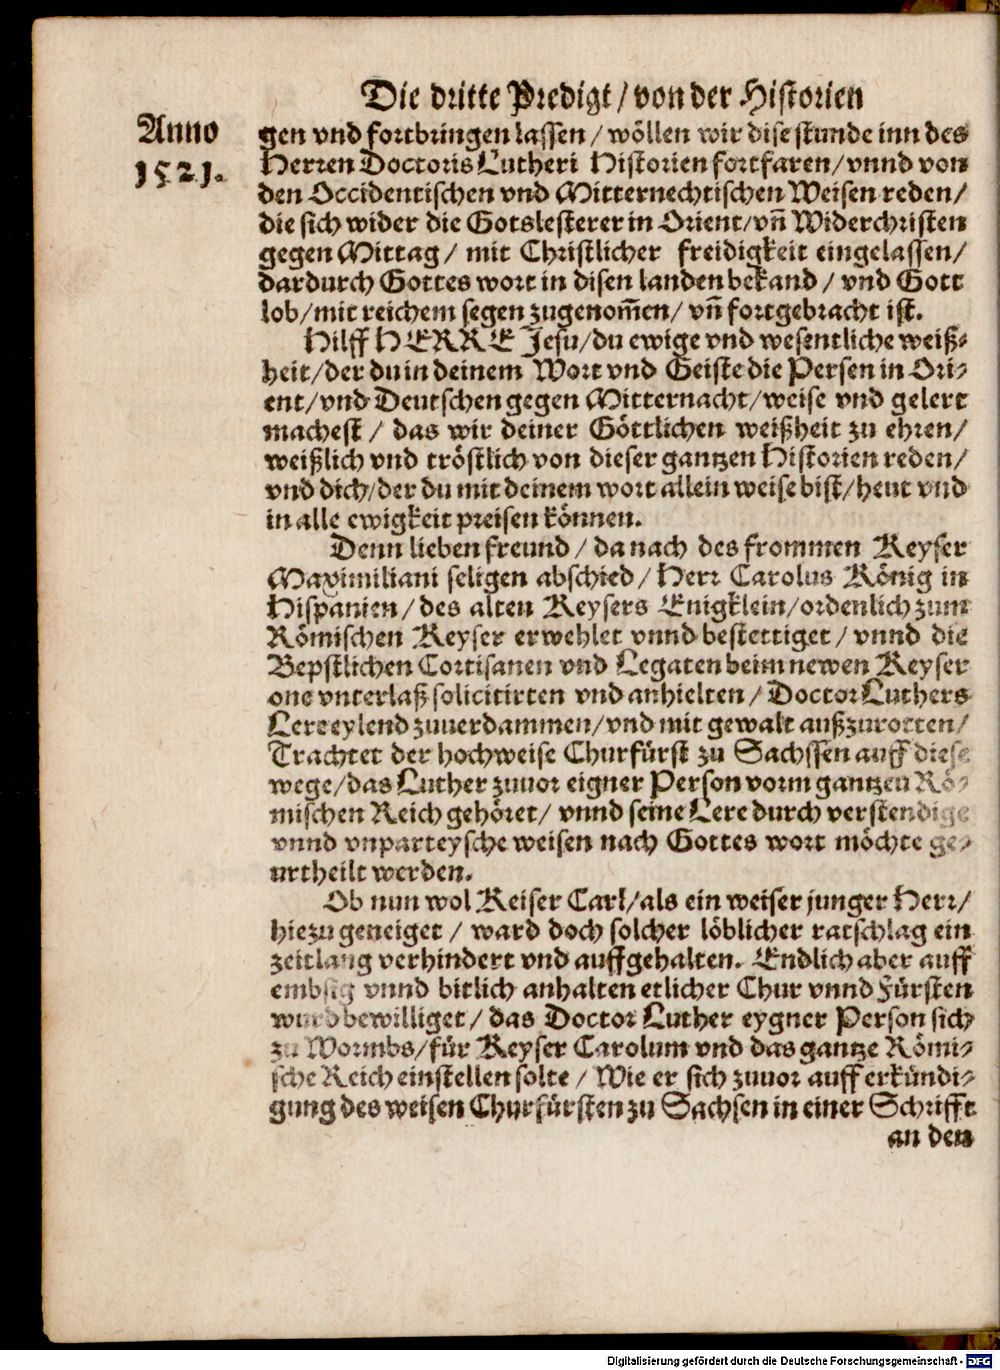 Die dritte Predigt / von der Historien
Anno
1521.
gen vnd fortbringen lassen / wöllen wir dise stunde inn des
Herren Doctoris Lutheri Historien fortfaren / vnnd von
den Occidentischen vnd Mitternechtischen Weisen reden /
die sich wider die Gotslesterer in Orient / vn̄ Widerchristen
gegen Mittag / mit Christlicher freidigkeit eingelassen /
dardurch Gottes wort in disen landen bekand / vnd Gott
lob / mit reichem segen zugenom̄en / vn̄ fortgebracht ist.
Hilff HERRE Jesu / du ewige vnd wesentliche weiß-
heit / der du in deinem Wort vnd Geiste die Persen in Ori-
ent / vnd Deutschen gegen Mitternacht / weise vnd gelert
machest / das wir deiner Göttlichen weißheit zu ehren /
weißlich vnd tröstlich von dieser gantzen Historien reden /
vnd dich / der du mit deinem wort allein weise bist / heut vnd
in alle ewigkeit preisen können.
Denn lieben freund / da nach des frommen Keyser
Maximiliani seligen abschied / Herr Carolus König in
Hispanien / des alten Keysers Enigklein / ordenlich zum
Römischen Keyser erwehlet vnnd bestettiget / vnnd die
Bepstlichen Cortisanen vnd Legaten beim newen Keyser
one vnterlaß solicitirten vnd anhielten / Doctor Luthers
Lere eylend zuuerdammen / vnd mit gewalt außzurotten /
Trachtet der hochweise Churfürst zu Sachssen auff diese
wege / das Luther zuuor eigner Person vorm gantzen Rö-
mischen Reich gehöret / vnnd seine Lere durch verstendige
vnnd vnparteysche weisen nach Gottes wort möchte ge-
urtheilt werden.
Ob nun wol Keiser Carl / als ein weiser junger Herr /
hiezu geneiget / ward doch solcher löblicher ratschlag ein
zeitlang verhindert vnd auffgehalten. Endlich aber auff
embsig vnnd bitlich anhalten etlicher Chur vnnd Fürsten
wurd bewilliget / das Doctor Luther eygner Person sich
zu Wormbs / für Keyser Carolum vnd das gantze Römi-
sche Reich einstellen solte / Wie er sich zuuor auff erkündi-
gung des weisen Churfürsten zu Sachsen in einer Schrifft
an den
Digitalisierung gefördert durch die Deutsche Forschungsgemeinschaft - DFG